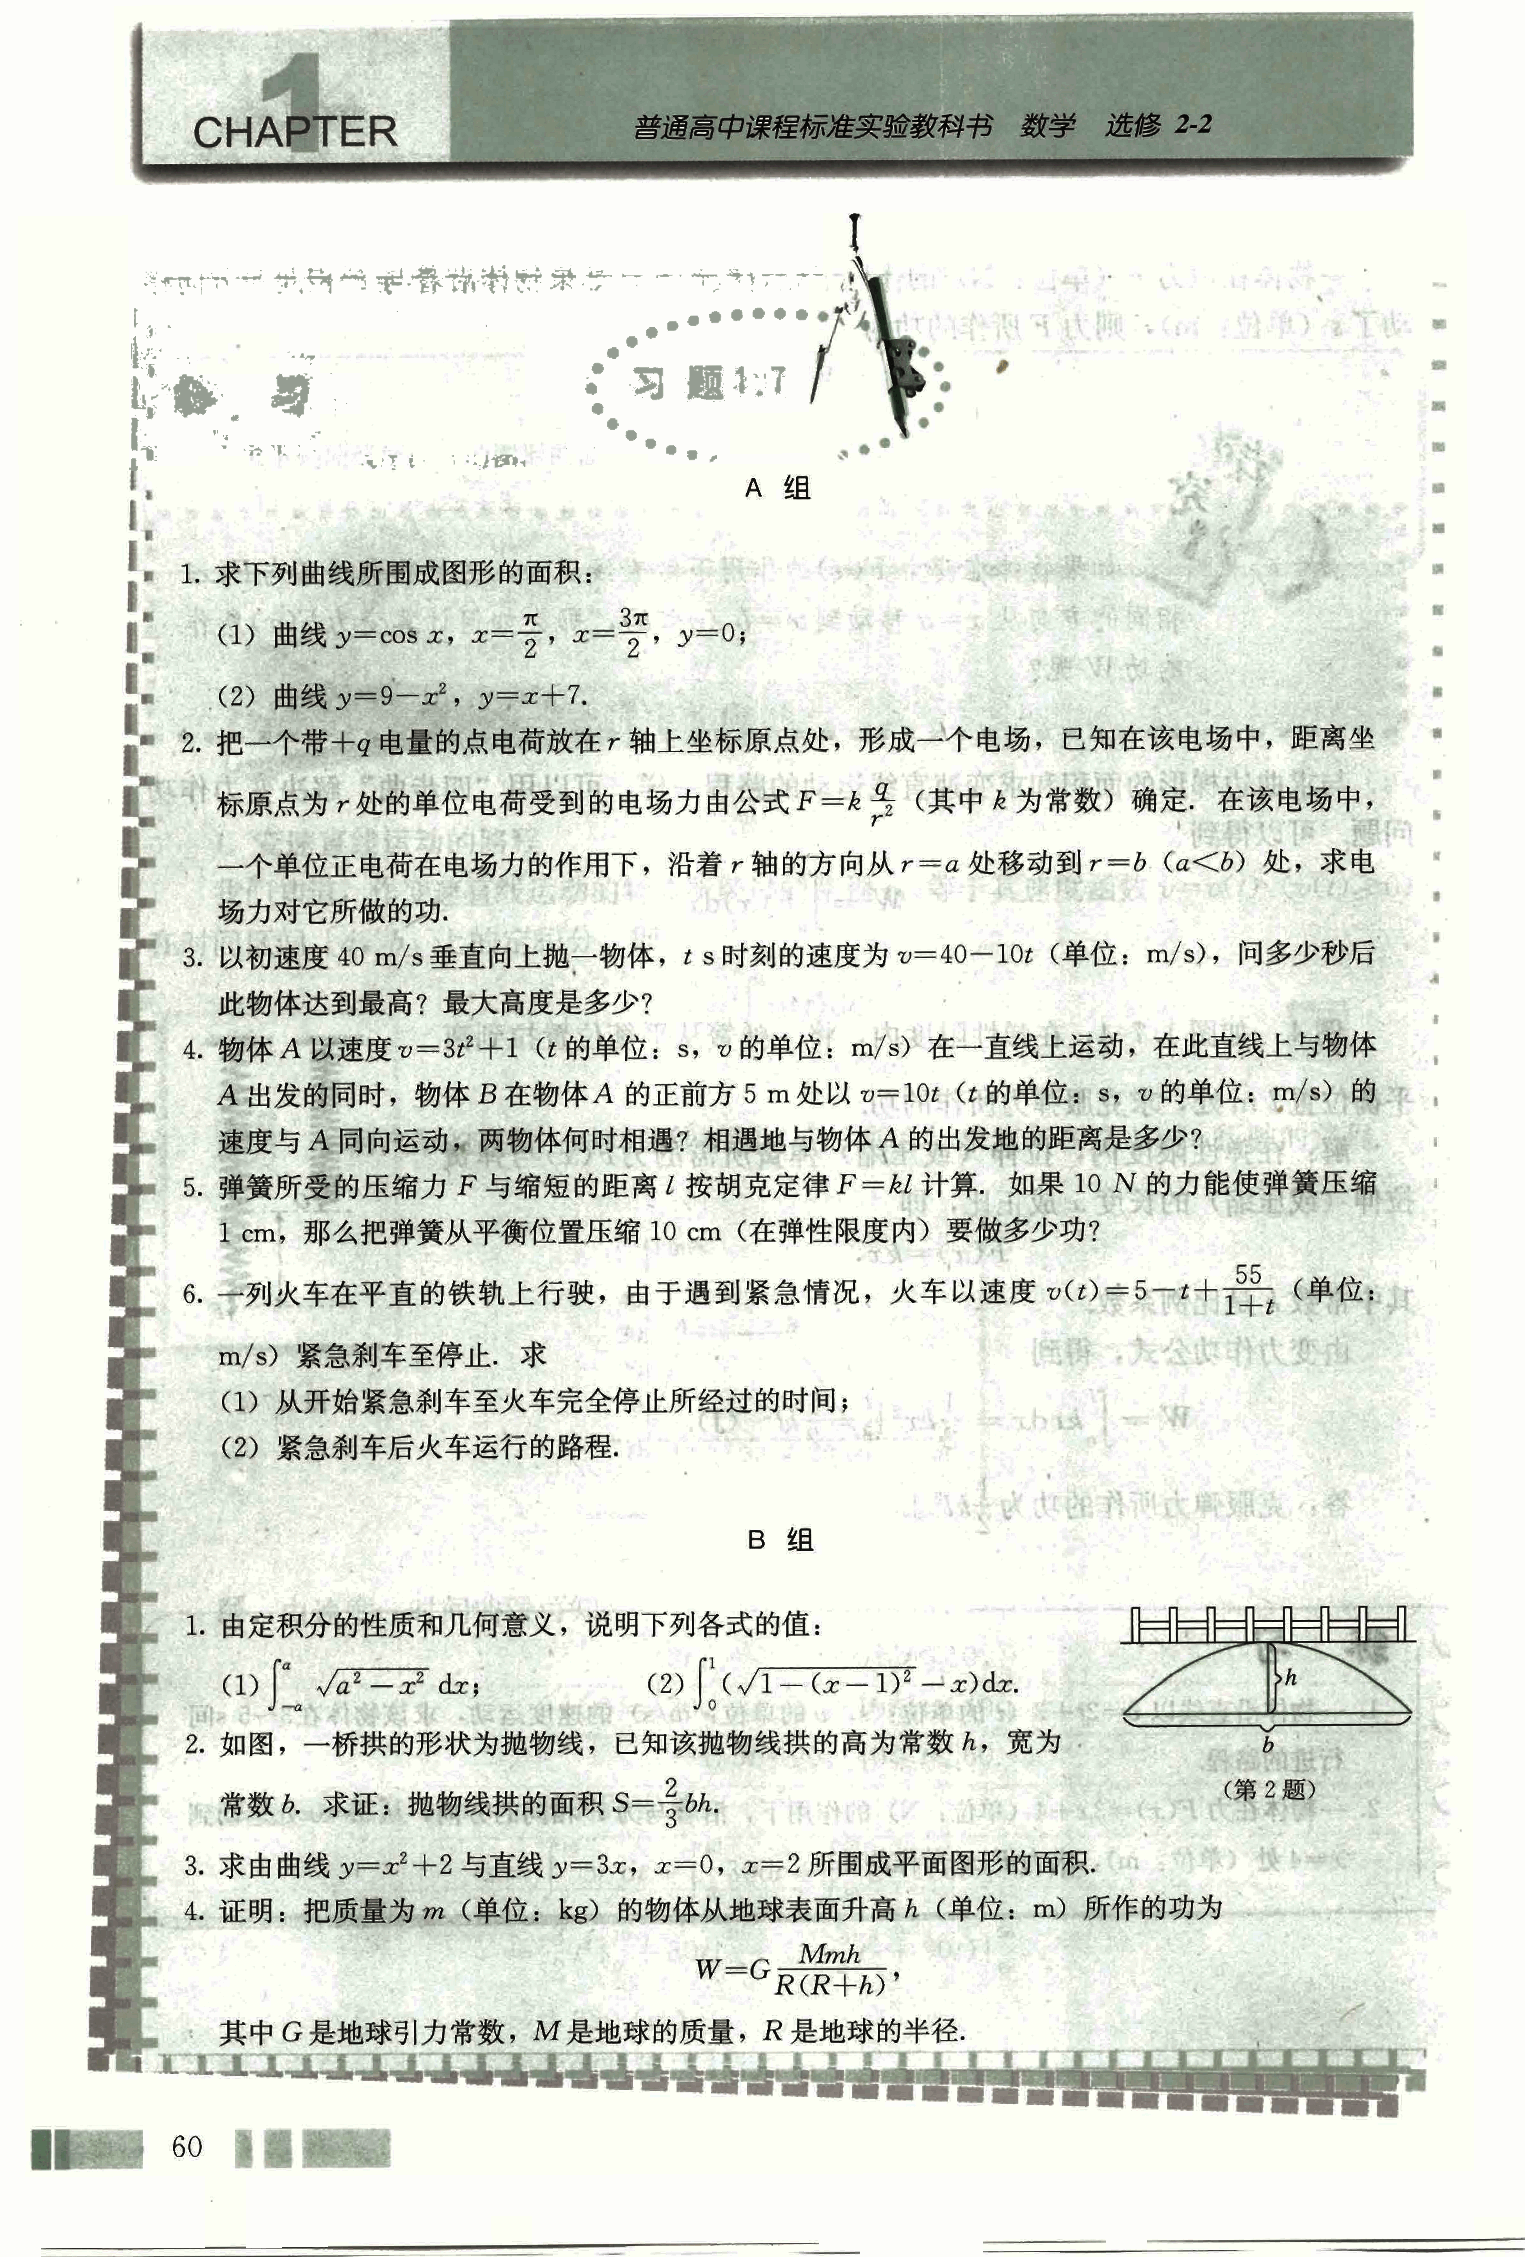 1
CHAPTER
普通高中课程标准实验教科书 数学 选修 2-2
习 题 1.7
A 组
1. 求下列曲线所围成图形的面积：
(1) 曲线 y=cos x, x=π/2, x=3π/2, y=0;
(2) 曲线 y=9-x², y=x+7.
2. 把一个带+q电量的点电荷放在r轴上坐标原点处，形成一个电场，已知在该电场中，距离坐
标原点为r处的单位电荷受到的电场力由公式F=k q/r²（其中k为常数）确定. 在该电场中，
一个单位正电荷在电场力的作用下，沿着r轴的方向从r=a处移动到r=b（a<b）处，求电
场力对它所做的功.
3. 以初速度40 m/s垂直向上抛一物体，t s时刻的速度为v=40-10t（单位：m/s），问多少秒后
此物体达到最高？最大高度是多少？
4. 物体A以速度v=3t²+1（t的单位：s，v的单位：m/s）在一直线上运动，在此直线上与物体
A出发的同时，物体B在物体A的正前方5 m处以v=10t（t的单位：s，v的单位：m/s）的
速度与A同向运动，两物体何时相遇？相遇地与物体A的出发地的距离是多少？
5. 弹簧所受的压缩力F与缩短的距离l按胡克定律F=kl计算. 如果10 N的力能使弹簧压缩
1 cm，那么把弹簧从平衡位置压缩10 cm（在弹性限度内）要做多少功？
6. 一列火车在平直的铁轨上行驶，由于遇到紧急情况，火车以速度v(t)=5-t+55/(1+t)（单位：
m/s）紧急刹车至停止. 求
(1) 从开始紧急刹车至火车完全停止所经过的时间；
(2) 紧急刹车后火车运行的路程.
B 组
1. 由定积分的性质和几何意义，说明下列各式的值：
(1) ∫₋ₐᵃ √(a²-x²) dx; (2) ∫₀¹(√(1-(x-1)²)-x)dx.
2. 如图，一桥拱的形状为抛物线，已知该抛物线拱的高为常数h，宽为
常数b. 求证：抛物线拱的面积S=2/3 bh.
h
b
（第2题）
3. 求由曲线y=x²+2与直线y=3x，x=0，x=2所围成平面图形的面积.
4. 证明：把质量为m（单位：kg）的物体从地球表面升高h（单位：m）所作的功为
W=G Mmh/(R(R+h)),
其中G是地球引力常数，M是地球的质量，R是地球的半径.
60